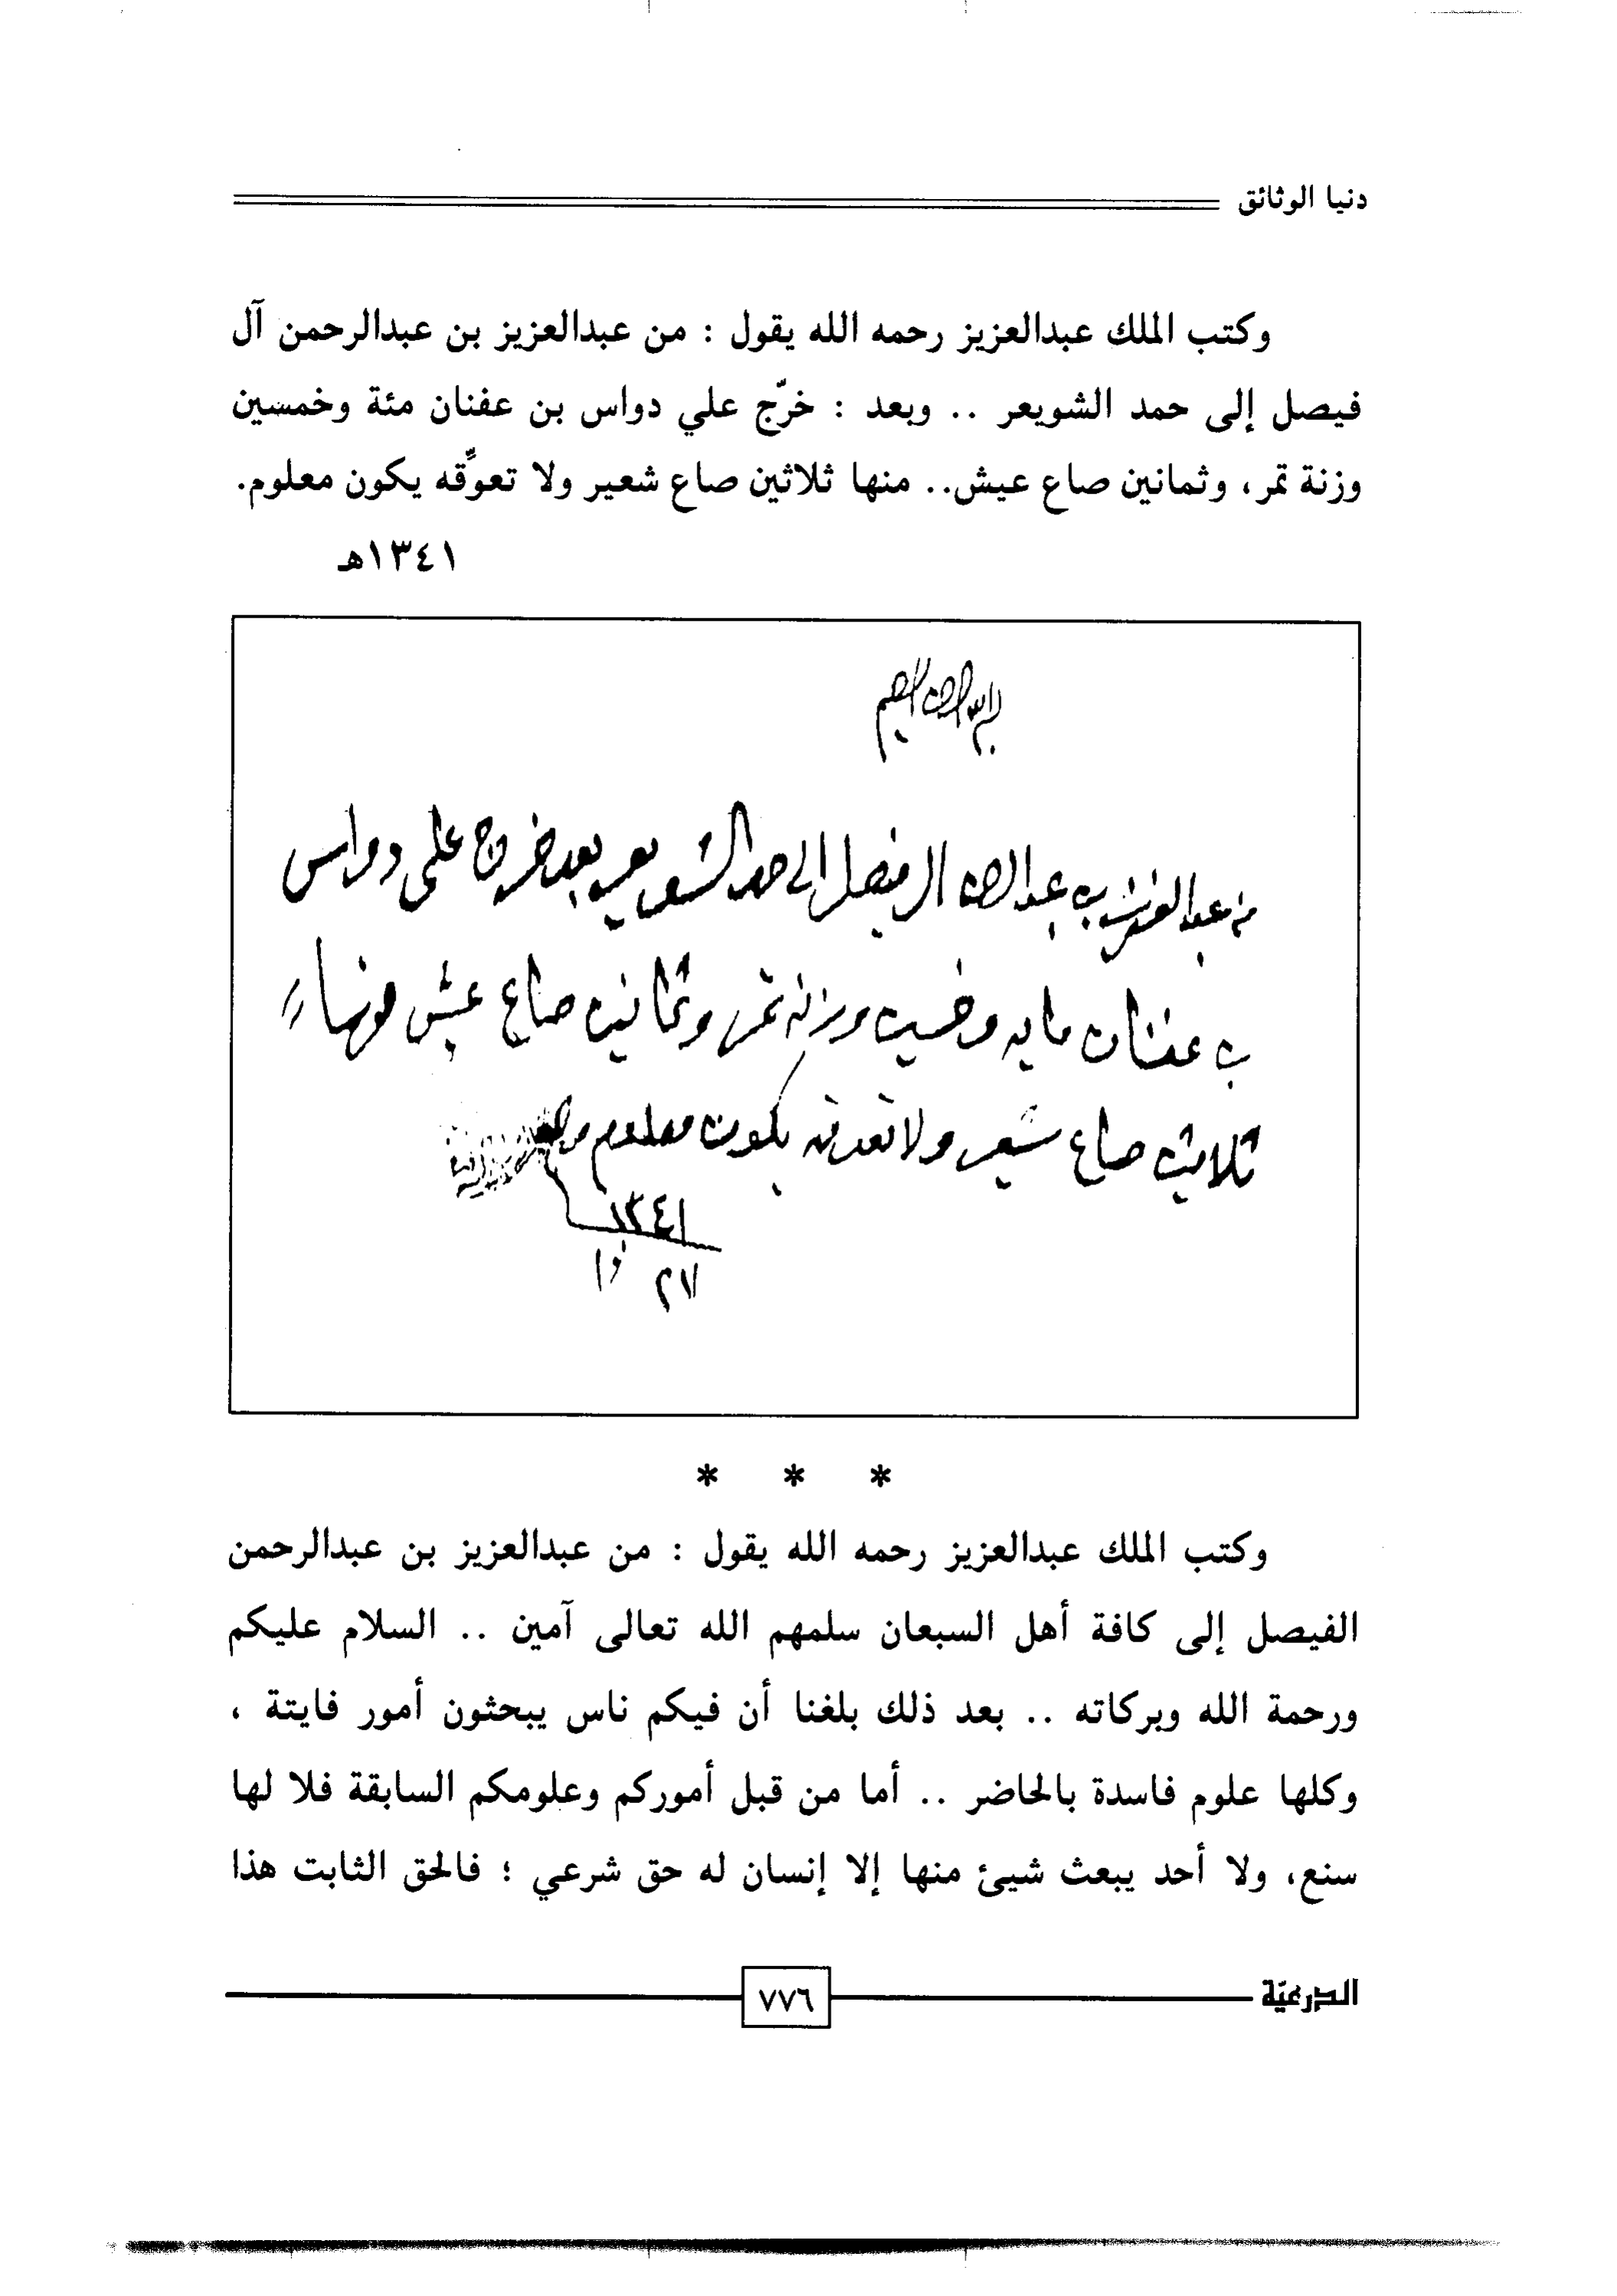 دنيا الوثائق
وكتب الملك عبدالعزيز رحمه الله يقول : من عبدالعزيز بن عبدالرحمن آل
فيصل إلى حمد الشويعر .. وبعد : خرّج علي دواس بن عفنان مئة وخمسين
وزنة تمر، وثمانين صاع عيش.. منها ثلاثين صاع شعير ولا تعوّقه يكون معلوم.
١٣٤١هـ
بسم الله الرحمن الرحيم
من عبدالعزيز بن عبدالرحمن ال فيصل الى حمد الشويعر بعد خرج على دواس
بن عفنان مايه وخمسين وزنه تمر وثمانين صاع عيش منها
ثلاثين صاع شعير ولا تعوقه يكون معلوم
١٣٤١
٢٧
* * *
وكتب الملك عبدالعزيز رحمه الله يقول : من عبدالعزيز بن عبدالرحمن
الفيصل إلى كافة أهل السبعان سلمهم الله تعالى آمين .. السلام عليكم
ورحمة الله وبركاته .. بعد ذلك بلغنا أن فيكم ناس يبحثون أمور فايتة ،
وكلها علوم فاسدة بالحاضر .. أما من قبل أموركم وعلومكم السابقة فلا لها
سنع، ولا أحد يبعث شيئ منها إلا إنسان له حق شرعي ؛ فالحق الثابت هذا
الدرعيّة
٧٧٦